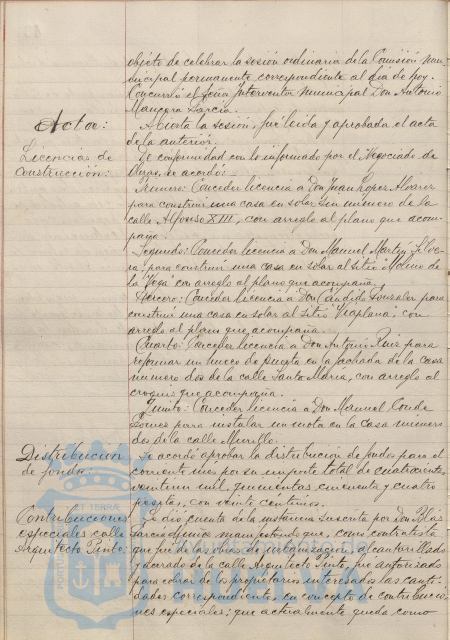 objeto de celebrar la sesión ordinaria de la Comisión mu-
nicipal permanente, correspondiente al día de hoy.
Concurrió el Señor Interventor municipal Don Antonio
Mancera García.
Acta:
Abierta la sesión, fué leida y aprobada el acta
de la anterior.
Licencias de
construcción:
De conformidad con lo informado por el Negociado de
Obras, se acordó:
Primero: Conceder licencia a Don Juan Lopez Alvarez
para construir una casa en solar sin número de la
calle Alfonso XIII, con arreglo al plano que acom-
paña.
Segundo: Conceder licencia a Don Manuel Martin Silve-
ra, para construir una casa en solar al sitio Molino de
la Vega con arreglo al plano que acompaña.
Tercero: Conceder licencia a Don Cándido Gonzalez para
construir una casa en solar al sitio Viaplana, con
arreglo al plano que acompaña.
Cuarto: Conceder licencia a Don Antonio Ruiz para
reformar un hueco de puerta en la fachada de la casa
número dos de la calle Santa María, con arreglo al
croquis que acompaña.
Quinto: Conceder licencia a Don Manuel Conde
Gomez para instalar un en la casa número
dos de la calle Murillo.
Distribución
de fondos:
Se acordó aprobar la distribución de fondos para el
corriente mes por su importe total de cuatrocientas
ventiun mil, quinientas cincuenta y cuatro
pesetas, con veinte centimos.
Contribuciones
especiales calle
Arquitecto Pinto:
Se dió cuenta de la instancia suscrita por Don Blás
García manifestando que, como contratista
que fué de las obras de urbanización, alcantarillado
y acerado de la calle Arquitecto Pinto, fué autorizado
para cobrar de los propietarios interesados las canti-
dades correspondientes, en concepto de contribucio-
nes especiales; que actualmente queda como